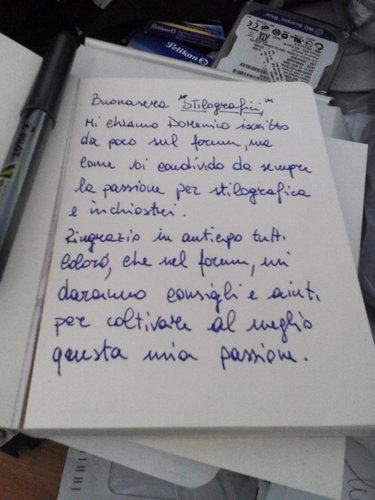 Pelikan
Pelikan
Buonasera "Stilografici,"
Mi chiamo Domenico iscritto
da poco sul forum, ma
come voi condivido da sempre
la passione per stilografica
e inchiostri.
Ringrazio in anticipo tutti
coloro, che nel forum, mi
daranno consigli e aiuti
per coltivare al meglio
questa mia passione.